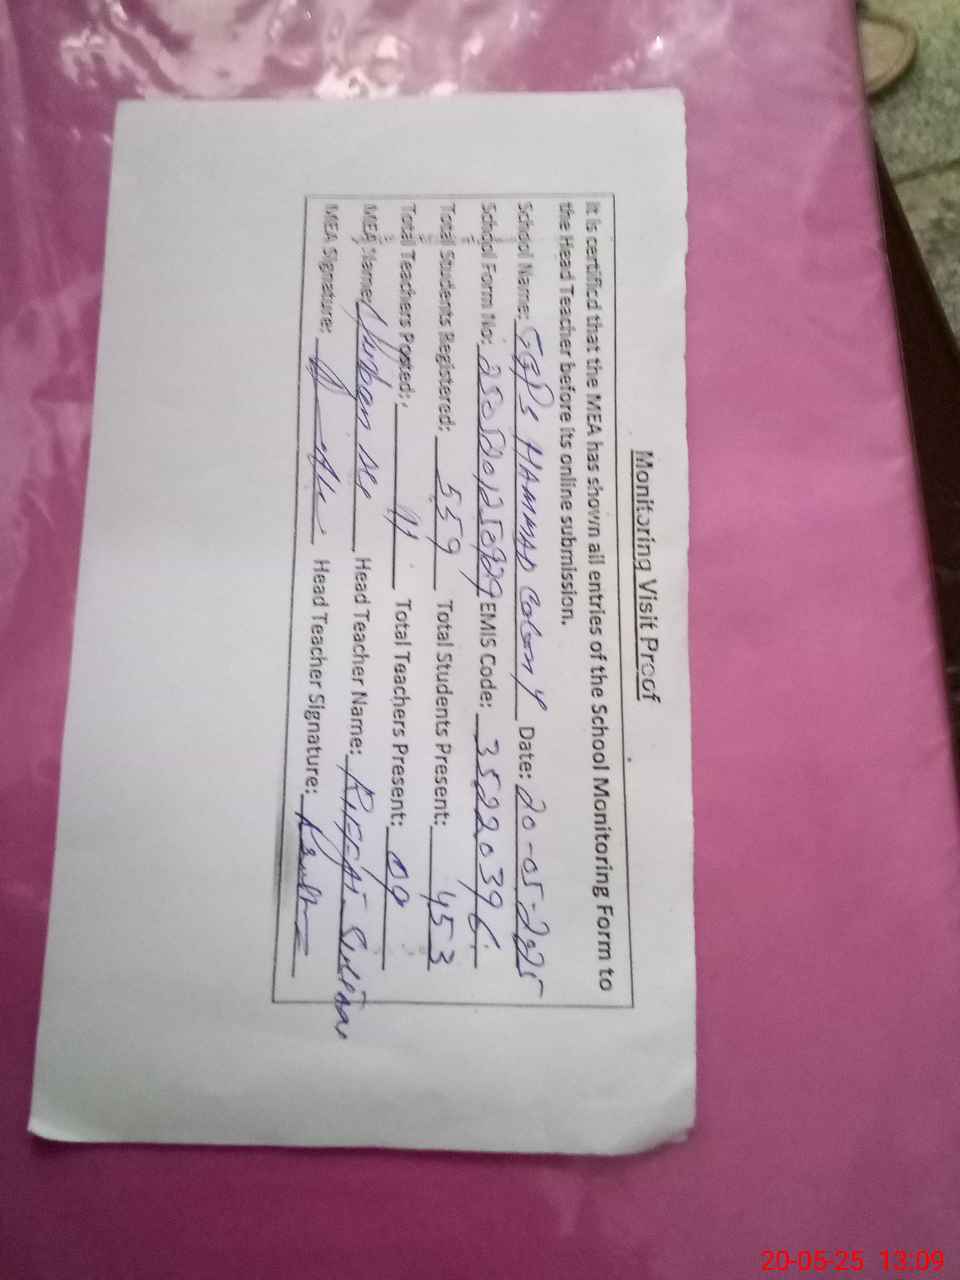 Monitoring Visit Proof
It is certified that the MEA has shown all entries of the School Monitoring Form to
the Head Teacher before its online submission.
School Name: GGPS HAMMAD Colony Date: 20-05-2025
School Form No: EMIS Code: 35220396
Total Students Registered: 559 Total Students Present: 453
Total Teachers Posted: 11 Total Teachers Present: 09
MEA Name: Head Teacher Name: Riffat Sultan
MEA Signature: Head Teacher Signature:
20-05-25 13:09